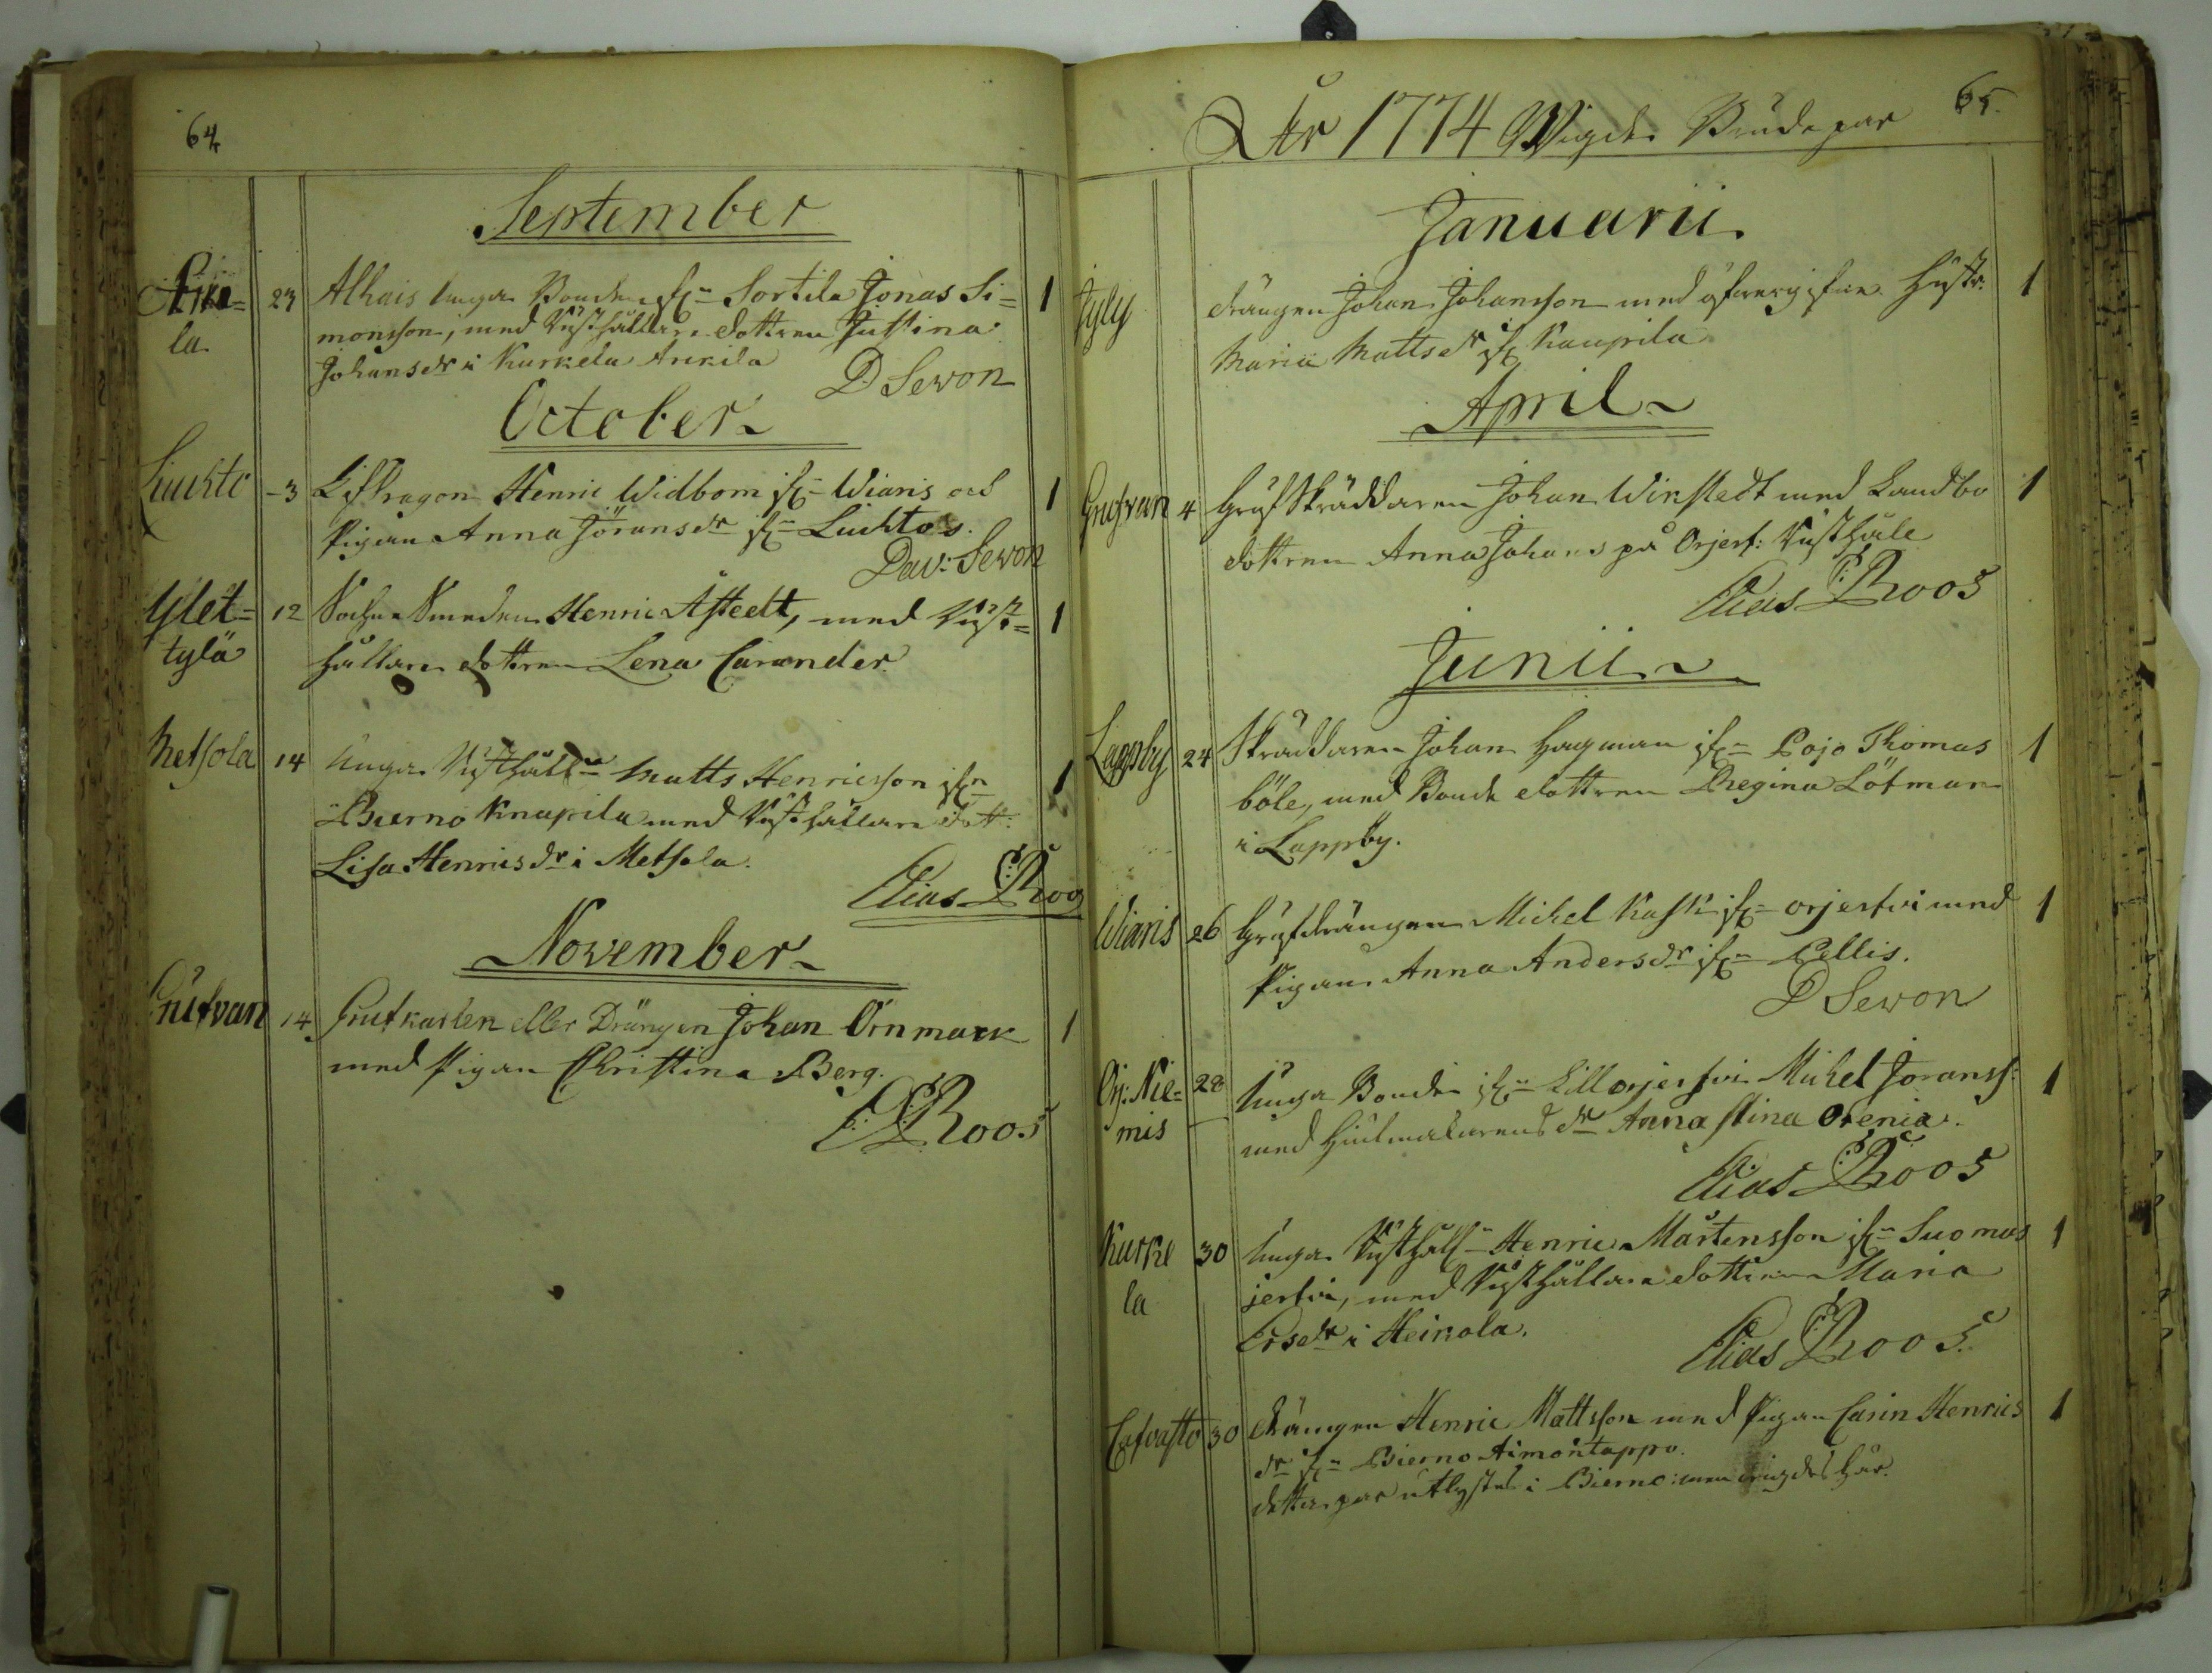 64
September
Anki=
la
23 Alhais Unga Bonden ifrn Sortila Jonas Si= 1
monsson, med Rusthållare dottren Justina
Johansdr i Kurkela Ankila
D Sevon
October
Luchto -3 Lifdragon Henric Widbom ifrn Wiaris och 1
Pigan Anna Jöransdr ifrn Luchto
Dav: Sevon
Ylet=
tylä
12 Sockne Smeden Henric Åstedt, med Rust= 1
hållare dottren Lena Carander
Metsola 14 Unga Rusthållrn Matts Henricsson ifrn 1
Bierno Knapila med Rusthållare dott:
Lisa Henricsdr i Metsola.
Elias Roos
November
Grufvan 14 Grufkarlen eller Drängen Johan Örnmark 1
med Pigan Christina Berg.
E Roos
65.
År 1774 Wigde Brudepar
Januarii
Jyly drängen Johan Johansson med öfvergifne Hustr. 1
Maria Mattsdr ifr Kaupila
April
Grufvan 4 GrufSkräddaren Johan Winstedt med Landbo 1
dottren Anna Johans på Orjerf: Rusthåle
Elias Roos
Junii
Lappby 24 Skräddaren Johan Hagman ifrn Pojo Thomas 1
böle, med Bonde dottren Regina Löfman
i Lappby.
Wiaris 26 Grufdrängen Michel Kask ifrn orjerfvi med 1
Pigan Anna Andersdr ifrn Pellis.
D Sevon
Orj: Nie=
mis
28 Unga Bonden ifrn Lillorjerfvi Michel Joranss: 1
med Hiulmakarens dr Anna Stina Orenia.
Elias Roos
Kurke
la
30 Unga Rusthållrn Henric Mårtensson ifrn Suomus 1
jerfvi, med Rusthållare dottren Maria
Ersdr i Heikola.
Elias Roos.
30 drängen Henric Mattsson med Pigan Carin Henrics 1
dr ifrn Bierno Aimontappo.
detta par utlystes i Bierno: men wigdes här.